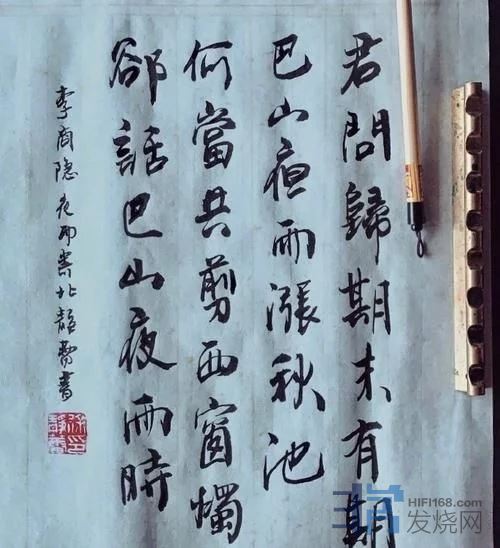 君問歸期未有期
巴山夜雨漲秋池
何當共剪西窗燭
卻話巴山夜雨時
李商隐夜雨寄北 靜書
HIFI168.com
发烧网